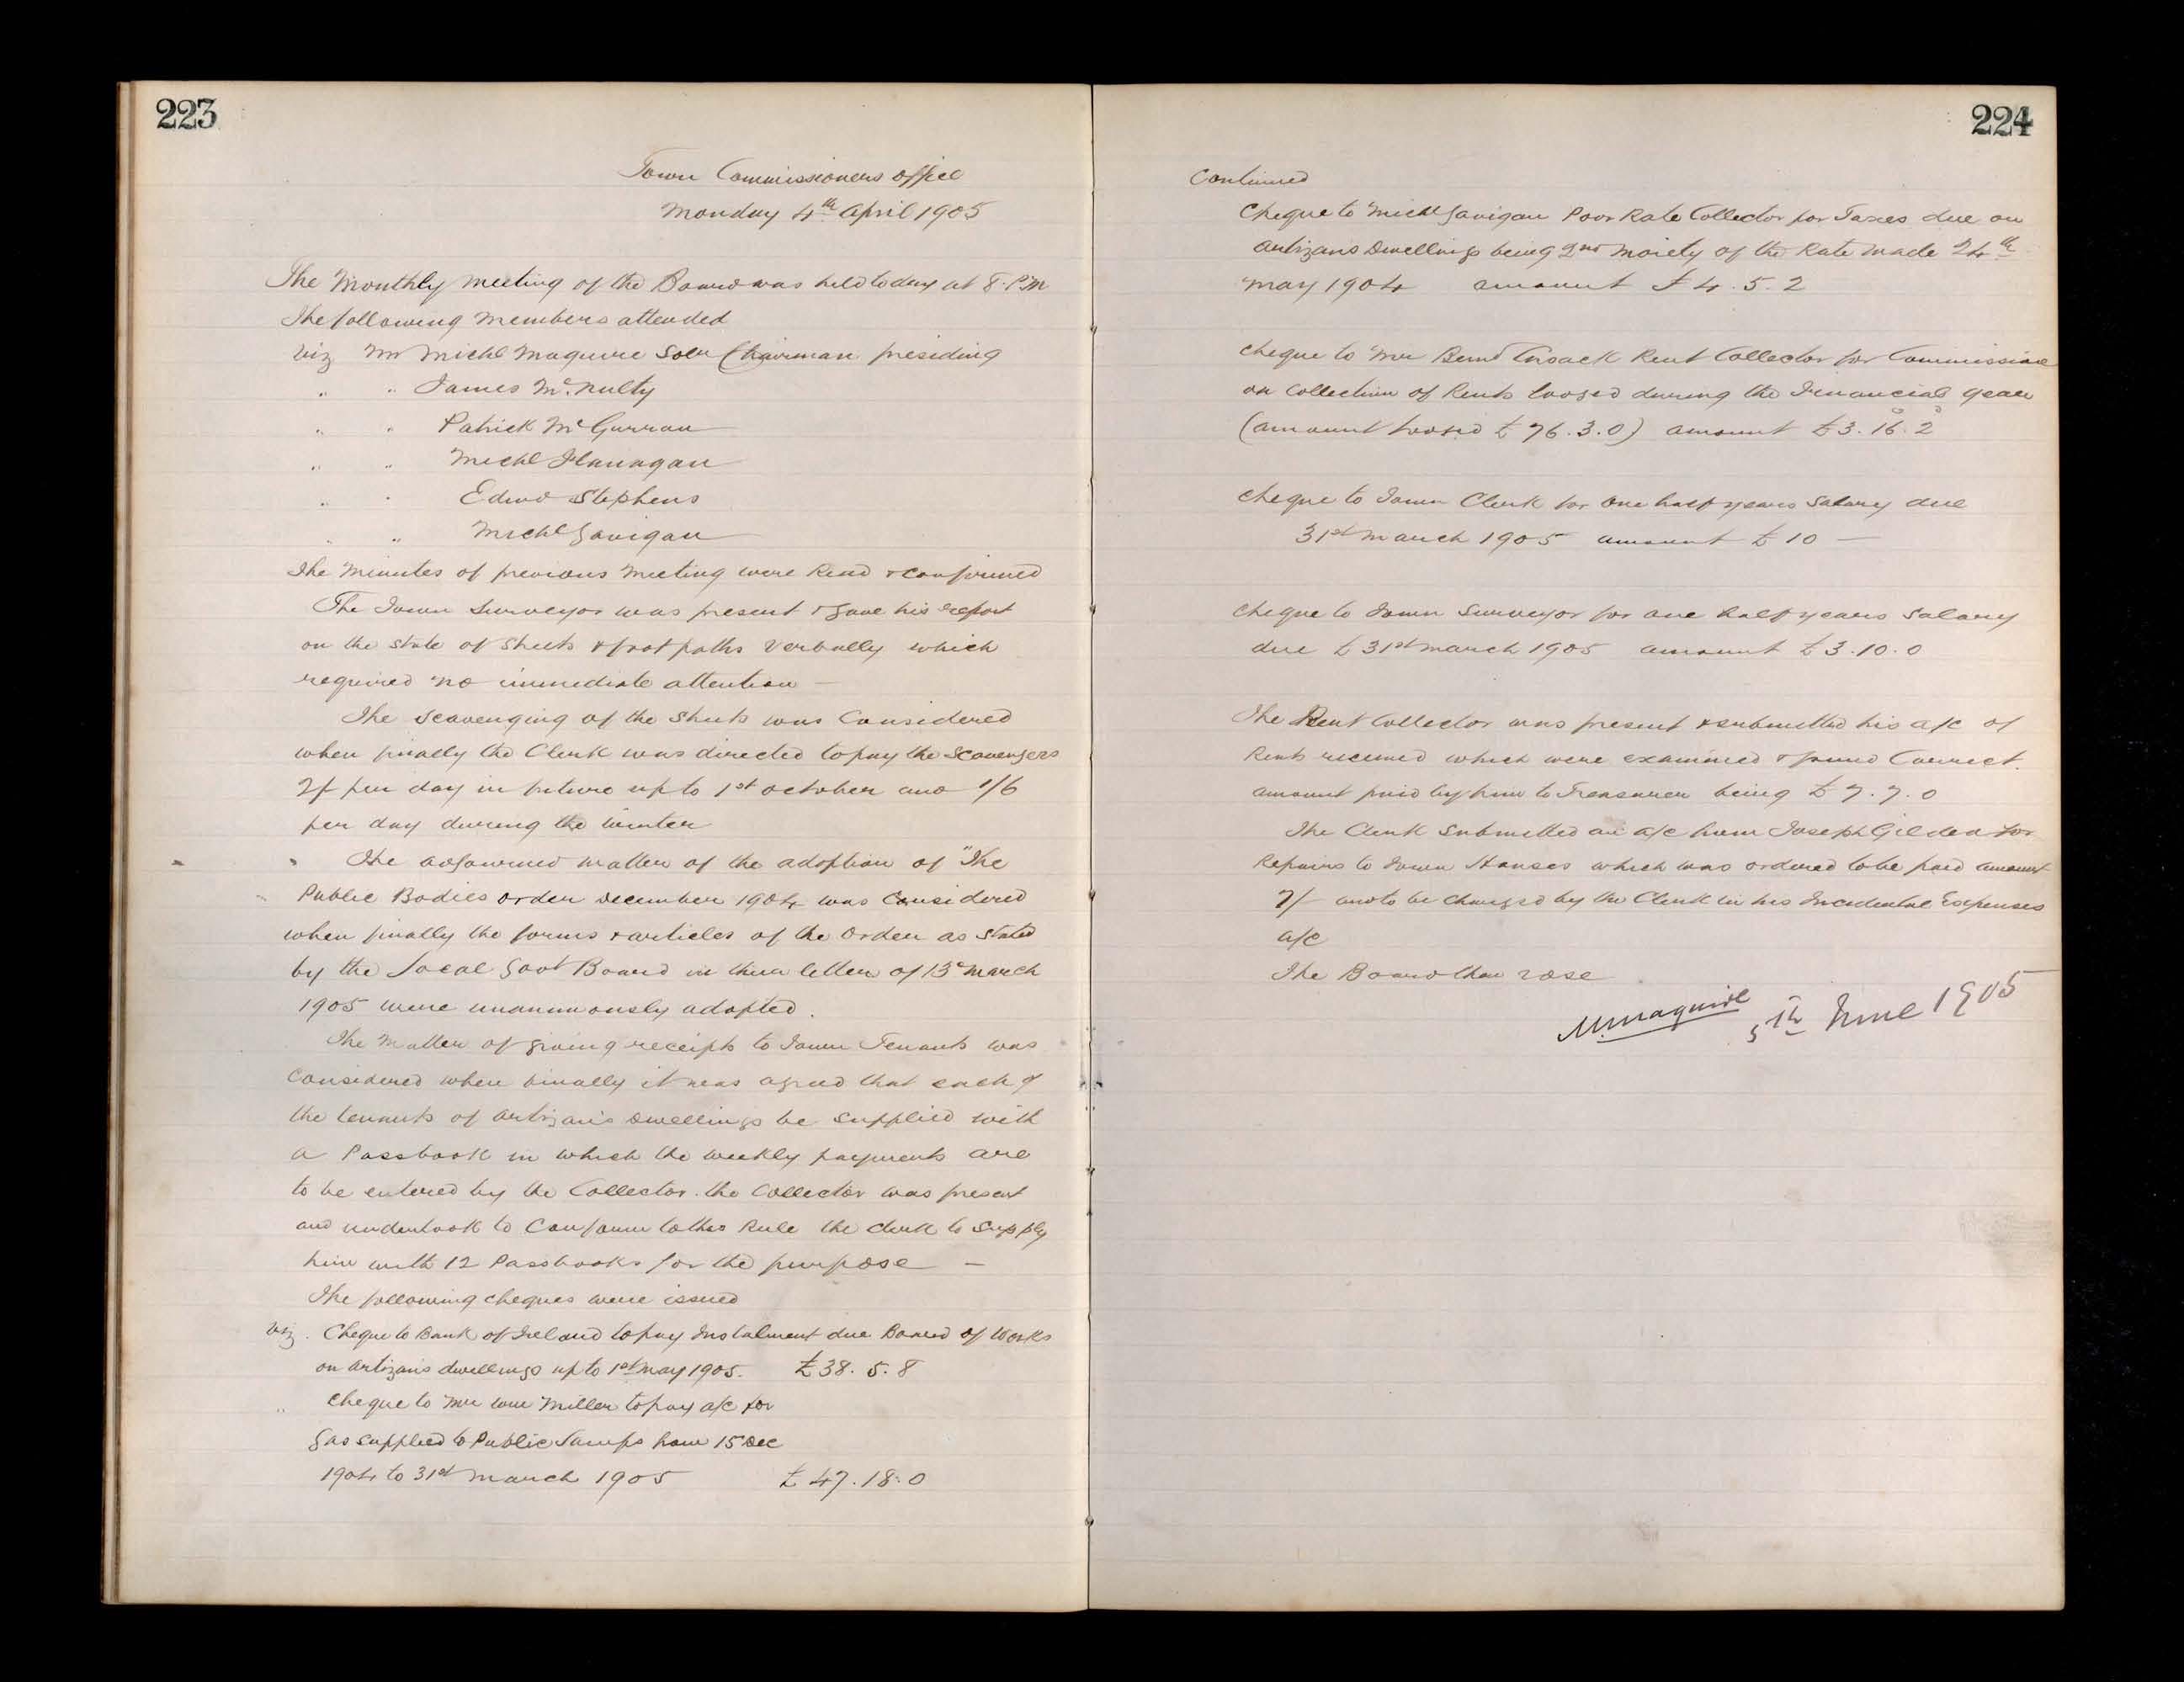 223
Town Commissioners office
Monday 4th April 1905
The Monthly meeting of the Board was held today at 8. P.M
The following Members attended
Viz Mr Michl Maguire Solr Chairman presiding
" " James McNulty
" " Patrick McGurran
" " Michl Flanagan
" " Edwd Stephens
" " Michl Gavigan
The Minutes of previous Meeting were Read & Confirmed
The Town Surveyor was present & gave his report
on the state of Streets & foot paths Verbally which
required no immediate attention —
The scavenging of the Streets was Considered
when finally the Clerk was directed to pay the Scavengers
2/- per day in future up to 1st October and 1/6
per day during the Winter
The adjourned matter of the adoption of "The
Public Bodies Order December 1904 was Considered
when finally the forms & articles of the Order as Stated
by the Local Govt Board in their letter of 13th March
1905 were unanimously adopted.
The Matter of giving receipts to Town Tenants was
Considered when finally it was agreed that each of
the tenants of Artizan's Dwellings be supplied with
a Passbook in which the weekly payments are
to be entered by the Collector. the Collector was present
and undertook to Conform to this Rule the Clerk to Supply
him with 12 Passbooks for the purpose —
The following cheques were issued
Viz. Cheque to Bank of Ireland to pay Instalment due Board of Works
on Artizan's dwellings up to 1st May 1905. £38. 5. 8
" Cheque to Mr Wm Miller to pay a/c for
Gas supplied to Public Lamps from 15 Dec
1904 to 31st March 1905 £47. 18. 0
224
Continued
Cheque to Michl Gavigan Poor Rate Collector for Taxes due on
Artizans Dwellings being 2nd Moiety of the Rate made 24th
May 1904 amount £4. 5. 2
Cheque to Mr Bernd Cusack Rent Collector for Commission
on Collection of Rents lodged during the Financial year
(amount lodged £76. 3. 0) amount £3. 16. 2
Cheque to Town Clerk for One half years Salary due
31st March 1905 amount £10 —
Cheque to Town Surveyor for one half years Salary
due £31st March 1905 amount £3. 10. 0
The Rent Collector was present & submitted his a/c of
Rents received which were examined & found Correct.
amount paid by him to Treasurer being £7. 7. 0
The Clerk submitted an a/c from Joseph Gildea for
Repairs to Town Houses which was ordered to be paid amount
7/- and to be charged by the Clerk in his Incidental Expenses
a/c
The Board then rose
M. Maguire 5th June 1905